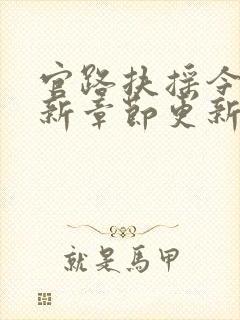 官路扶摇今
新章節更新
就是馬甲